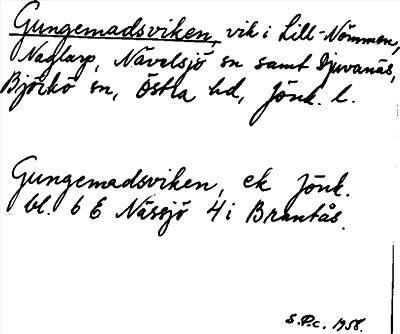 Gungemadsviken, vik i Lill-Nömmen,
Naglarp, Nävelsjö sn samt Djuvanäs,
Björkö sn, Östra hd, Jönk. l.
Gungemadsviken, ek Jönk.
bl. 6 E Nässjö 4 i Brantås.
S.P.c. 1958.